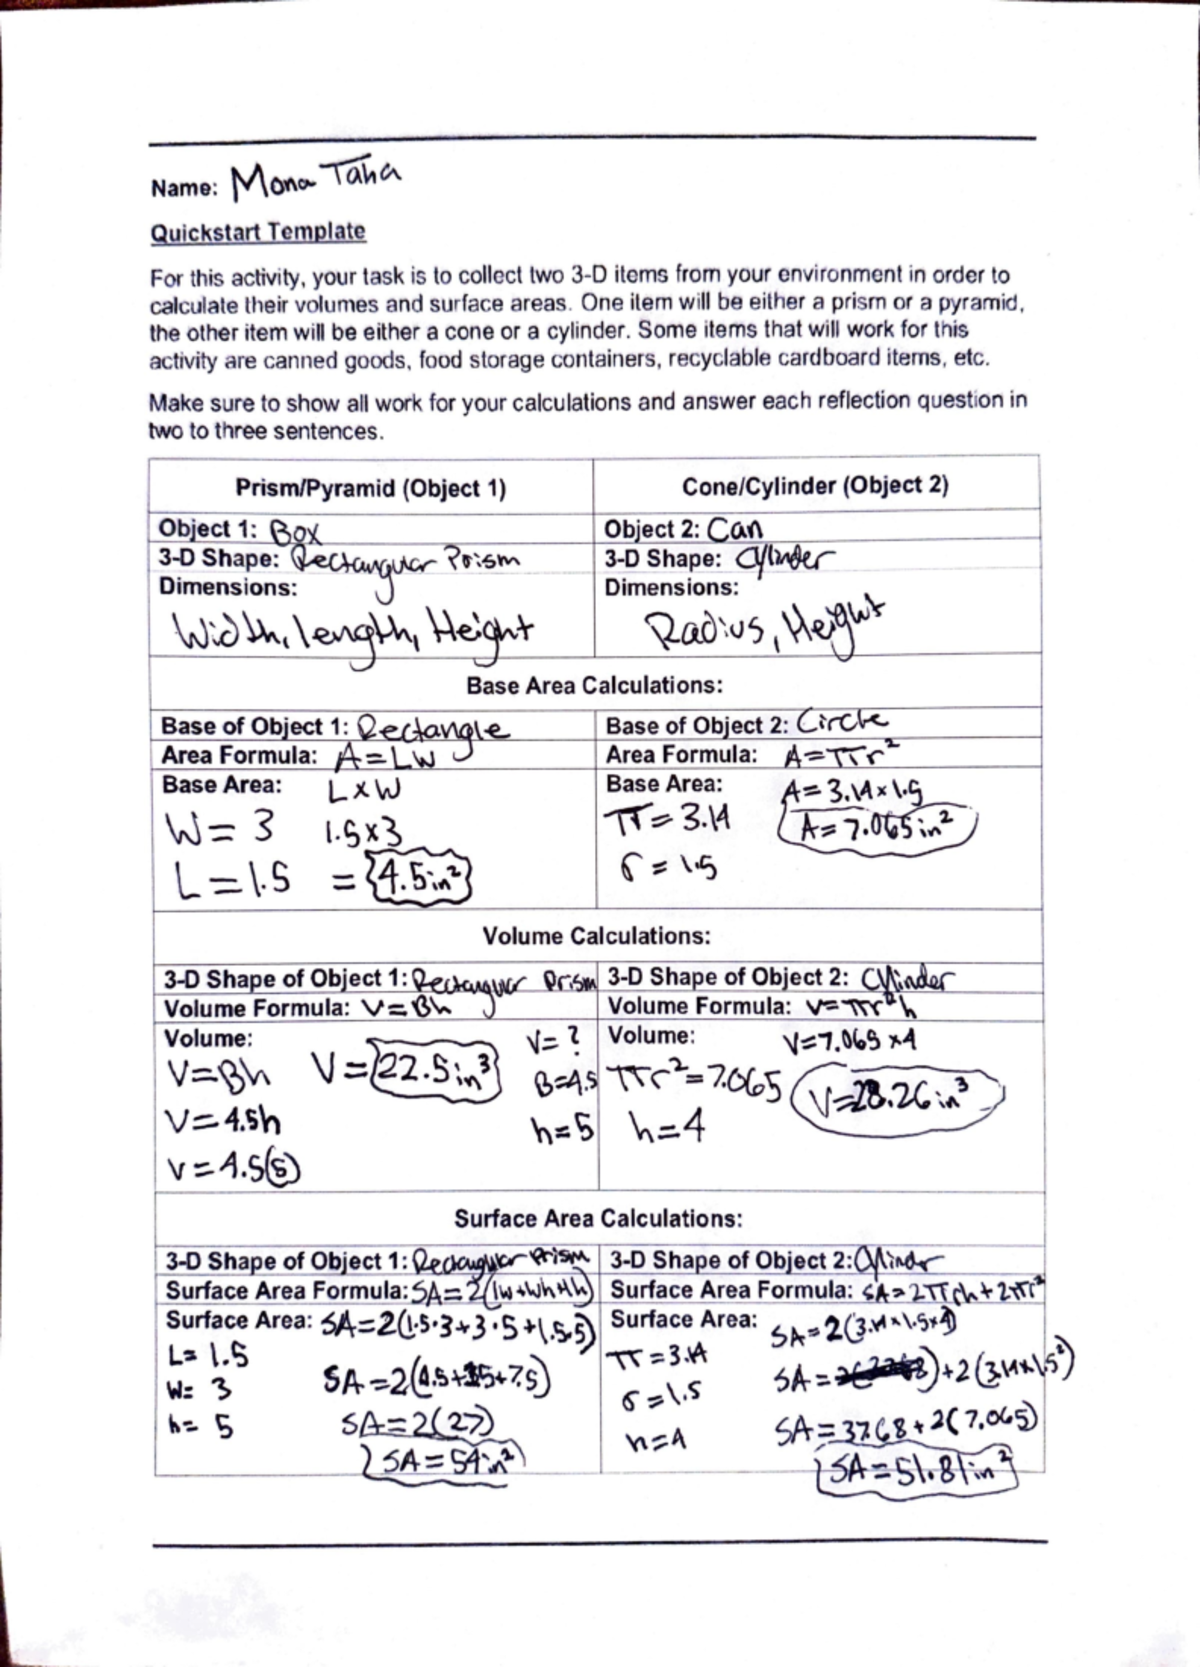 Name: Mona Taha
Quickstart Template
For this activity, your task is to collect two 3-D items from your environment in order to
calculate their volumes and surface areas. One item will be either a prism or a pyramid,
the other item will be either a cone or a cylinder. Some items that will work for this
activity are canned goods, food storage containers, recyclable cardboard items, etc.
Make sure to show all work for your calculations and answer each reflection question in
two to three sentences.
Prism/Pyramid (Object 1)
Cone/Cylinder (Object 2)
Object 1: Box
3-D Shape: Rectangular Prism
Dimensions:
Width, length, Height
Object 2: Can
3-D Shape: Cylinder
Dimensions:
Radius, Height
Base Area Calculations:
Base of Object 1: Rectangle
Area Formula: A=LW
Base Area: LxW
W=3 1.5x3
L=1.5 = 4.5in²
Base of Object 2: Circle
Area Formula: A=πr²
Base Area: A=3.14x1.5
π=3.14 A=7.065in²
r=1.5
Volume Calculations:
3-D Shape of Object 1: Rectangular Prism
Volume Formula: V=Bh
Volume: V=?
V=Bh V=22.5in³ B=4.5
V=4.5h h=5
V=4.5(5)
3-D Shape of Object 2: Cylinder
Volume Formula: V=πr²h
Volume: V=7.065x4
πr²=7.065 V=28.26in³
h=4
Surface Area Calculations:
3-D Shape of Object 1: Rectangular Prism
Surface Area Formula: SA=2(lw+wh+lh)
Surface Area: SA=2(1.5·3+3·5+1.5·5)
L=1.5
SA=2(4.5+15+7.5)
W=3
SA=2(27)
h=5
SA=54in²
3-D Shape of Object 2: Cylinder
Surface Area Formula: SA=2πrh+2πr²
Surface Area: SA=2(3.14x1.5x4)
π=3.14
SA= )+2(3.14x1.5²)
r=1.5
SA=37.68+2(7.065)
h=4
SA=51.81in²